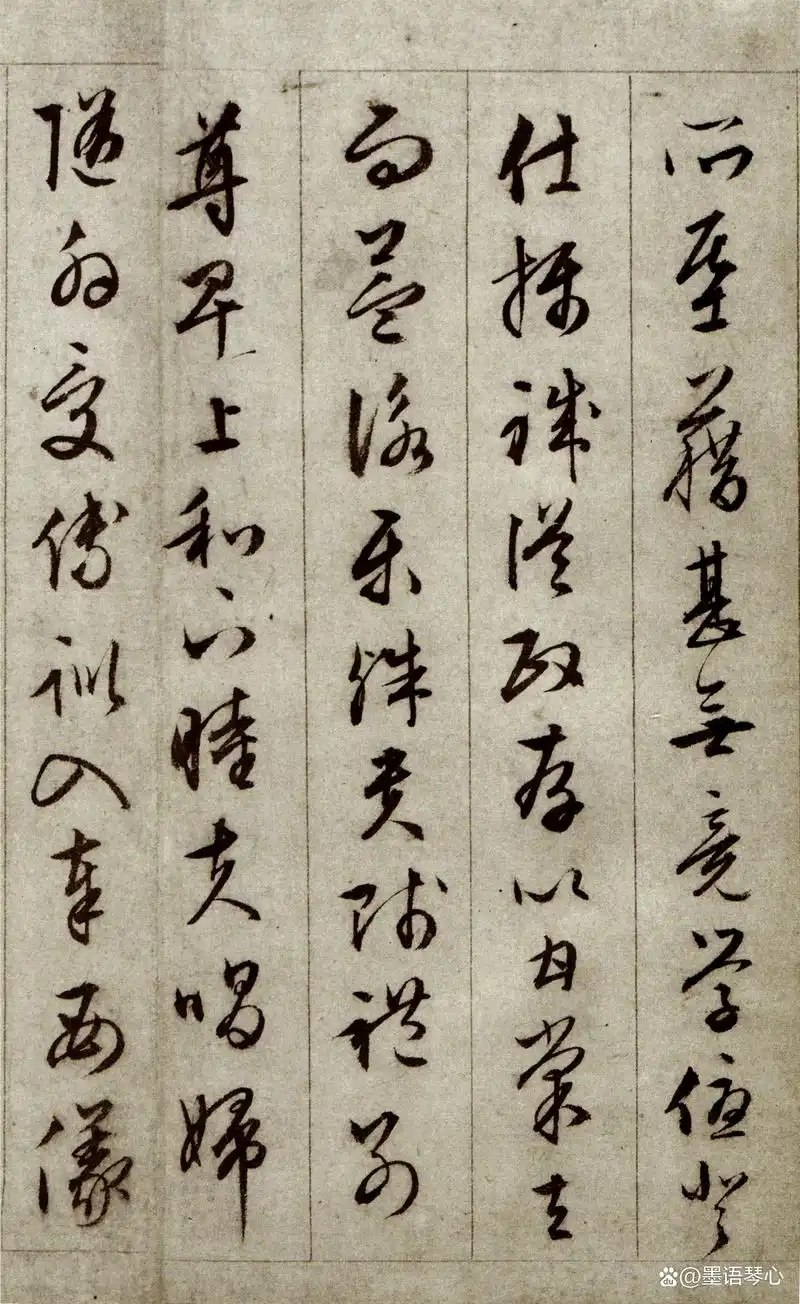 所基藉甚無竟學優登
仕攝職從政存以甘棠去
而益詠樂殊貴賤禮別
尊卑上和下睦夫唱婦
隨外受傅訓入奉母儀
du @墨语琴心